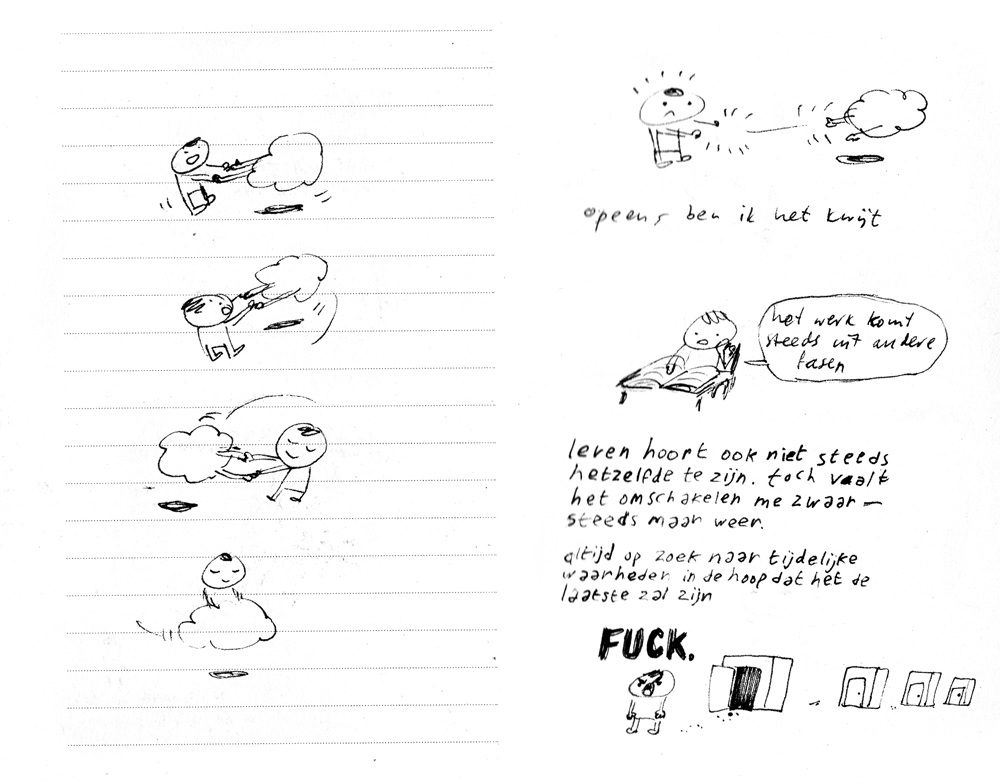 opeens ben ik het kwijt
het werk komt
steeds uit andere
fasen
leven hoort ook niet steeds
hetzelfde te zijn. toch vaalt
het omschakelen me zwaar —
steeds maar weer.
altijd op zoek naar tijdelijke
waarheden in de hoop dat het de
laatste zal zijn
FUCK.